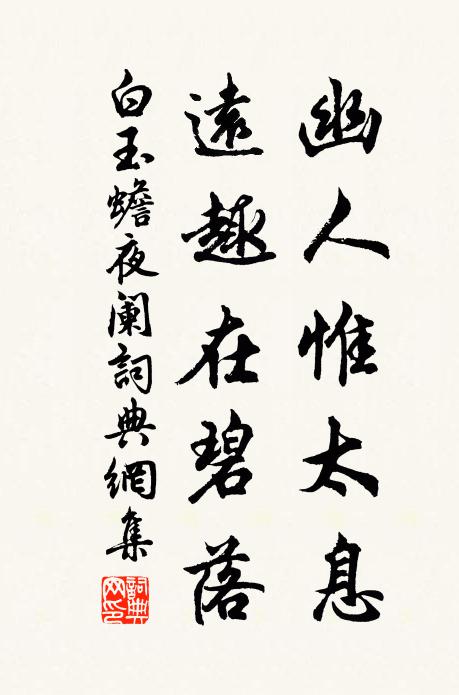 幽人惟太息
遠趣在碧落
白玉蟾夜闌詞典網集
詞典網印